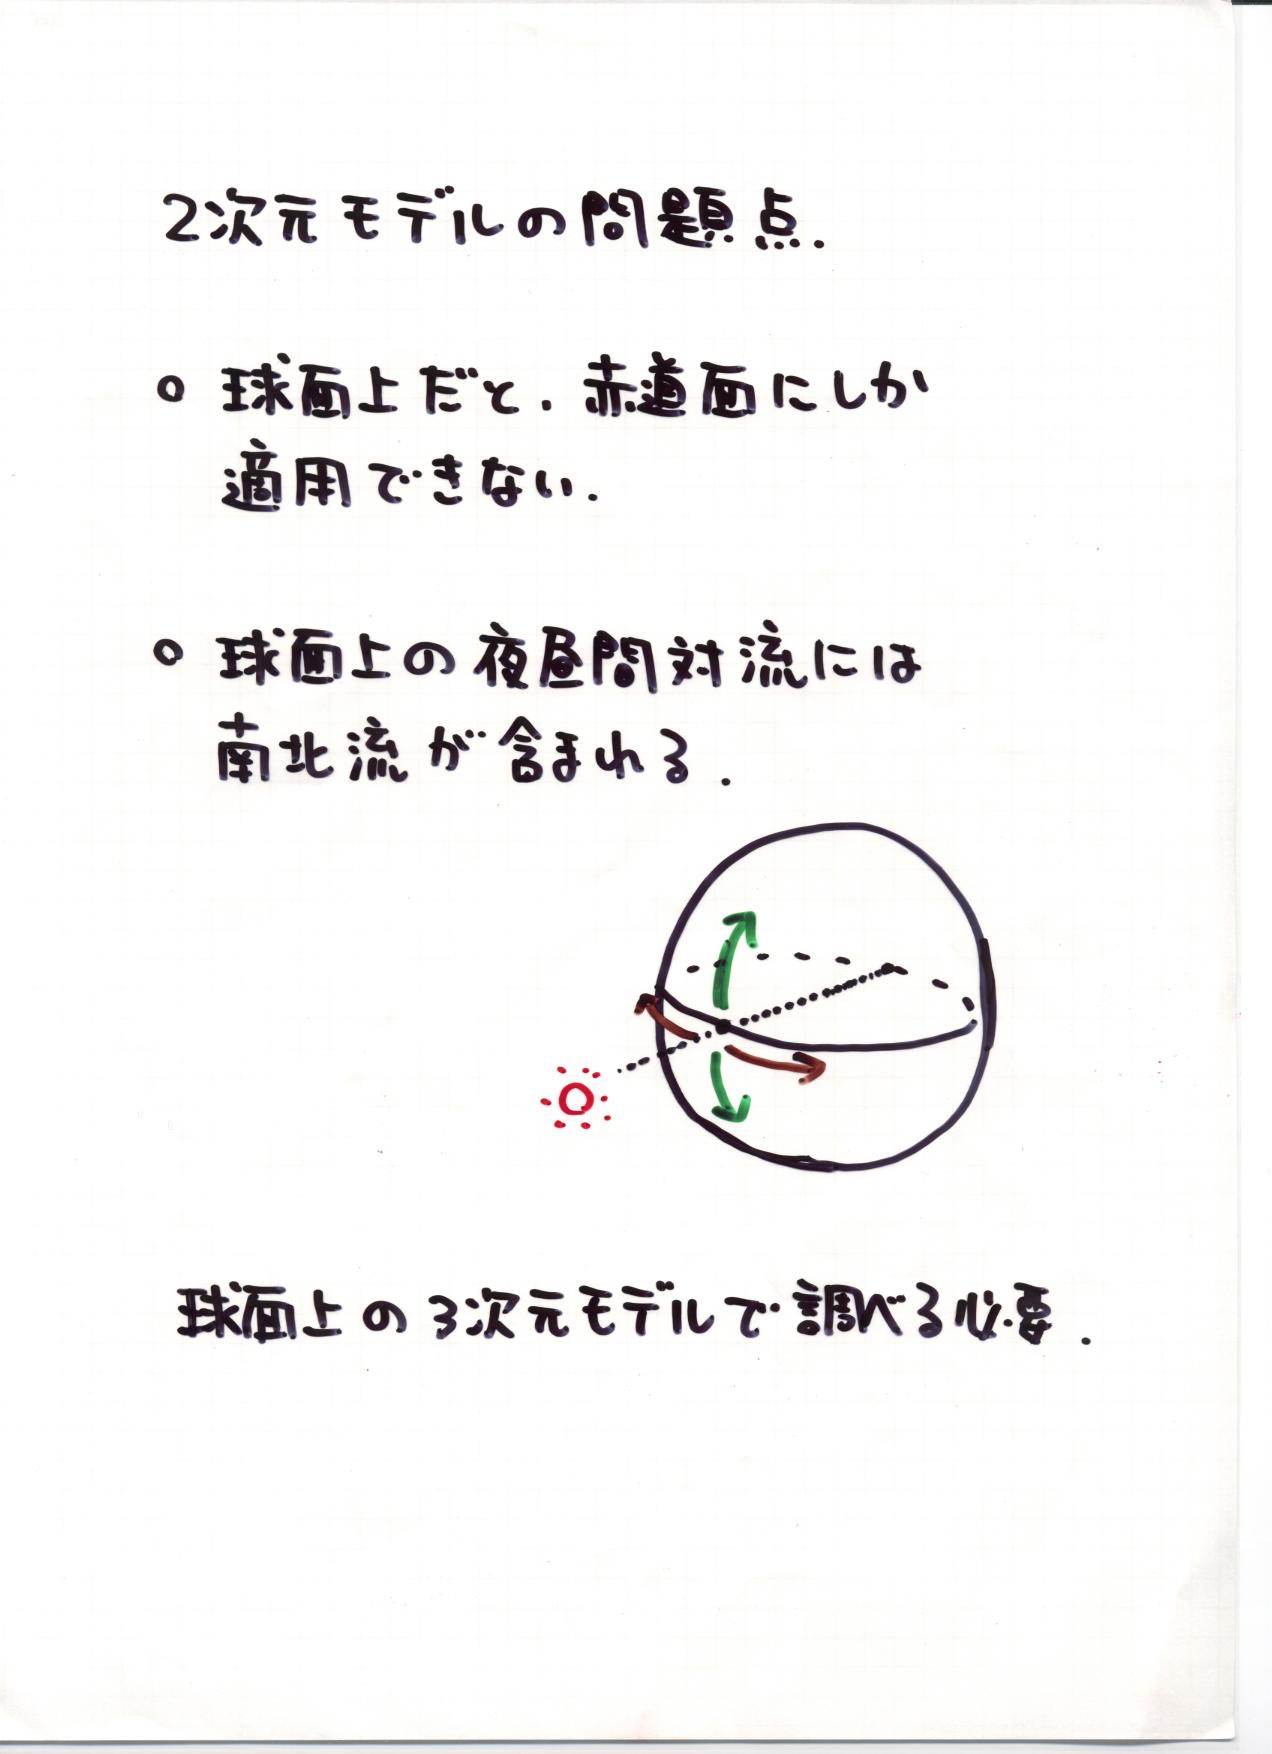 2次元モデルの問題点.
○ 球面上だと.赤道面にしか
適用できない.
○ 球面上の夜昼間対流には
南北流が含まれる.
球面上の3次元モデルで調べる必要.